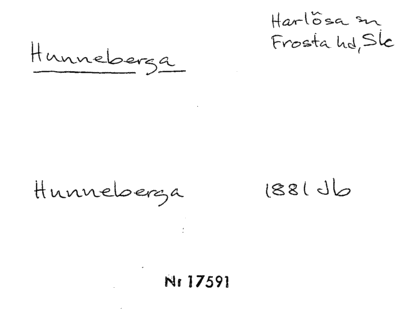 Hunneberga
Harlösa sn
Frosta hd, Slc
Hunneberga
1881 Jb
Nr 17591